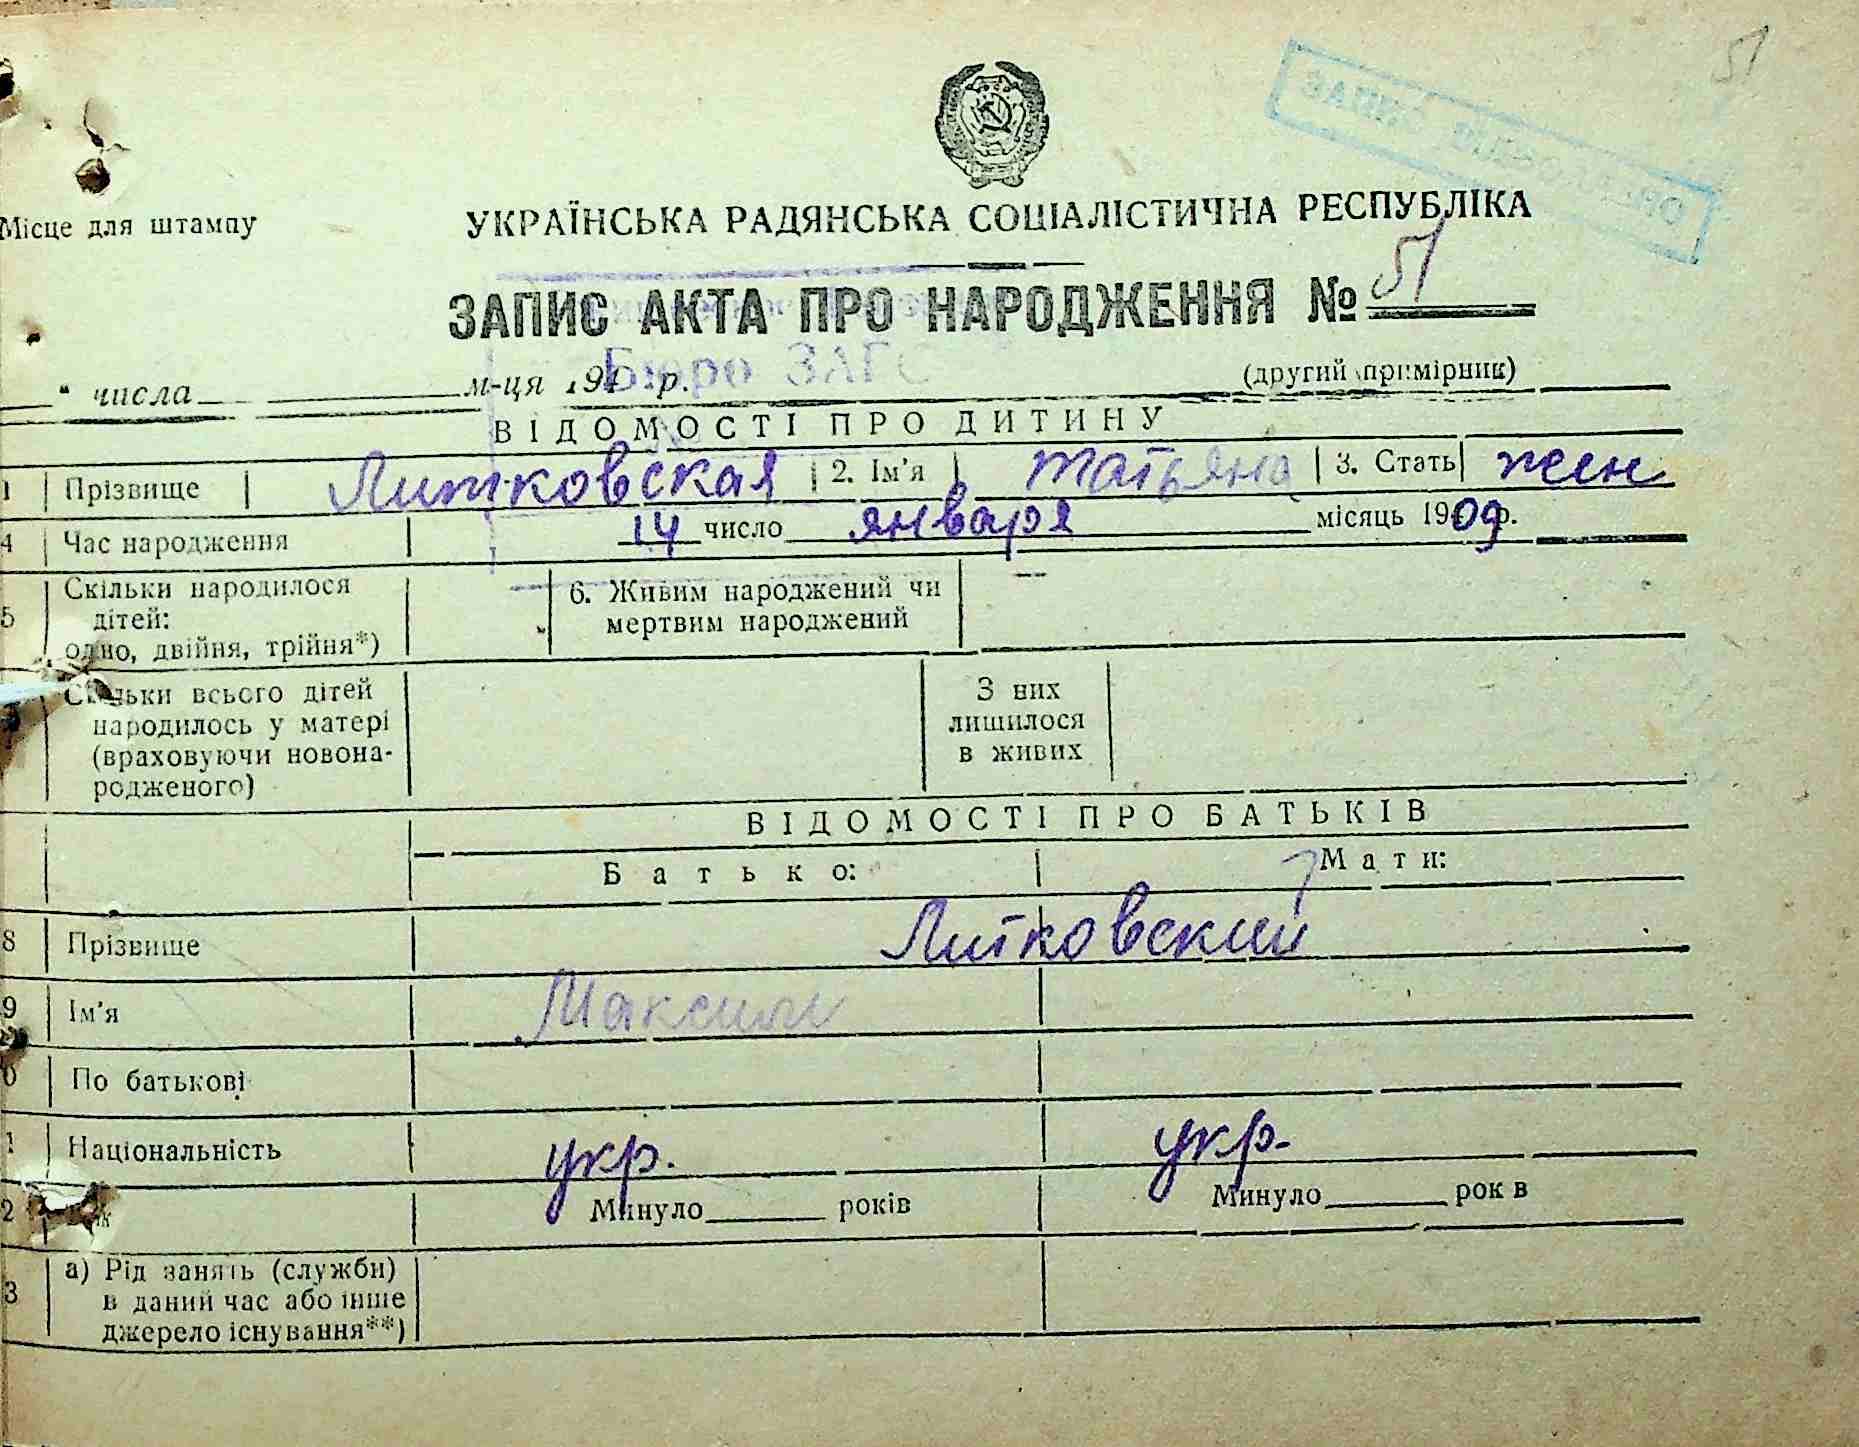 51
Місце для штампу
УКРАЇНСЬКА РАДЯНСЬКА СОЦІАЛІСТИЧНА РЕСПУБЛІКА
ЗАПИС АКТА ПРО НАРОДЖЕННЯ № 51
Бюро ЗАГС
" числа м-ця 194 р. (другий примірник)
ВІДОМОСТІ ПРО ДИТИНУ
1 Прізвище Литковская 2. Ім'я Татьяна 3. Стать жен
4 Час народження 14 число января місяць 1909 р.
5 Скільки народилося дітей: одно, двійня, трійня*) 6. Живим народжений чи мертвим народжений —
Скільки всього дітей народилось у матері (враховуючи новонародженого) З них лишилося в живих
ВІДОМОСТІ ПРО БАТЬКІВ
Батько: Мати:
8 Прізвище Литковский
9 Ім'я Максим
0 По батькові
1 Національність укр. укр.
2 Минуло років Минуло рок в
3 а) Рід занять (служби) в даний час або інше джерело існування**)